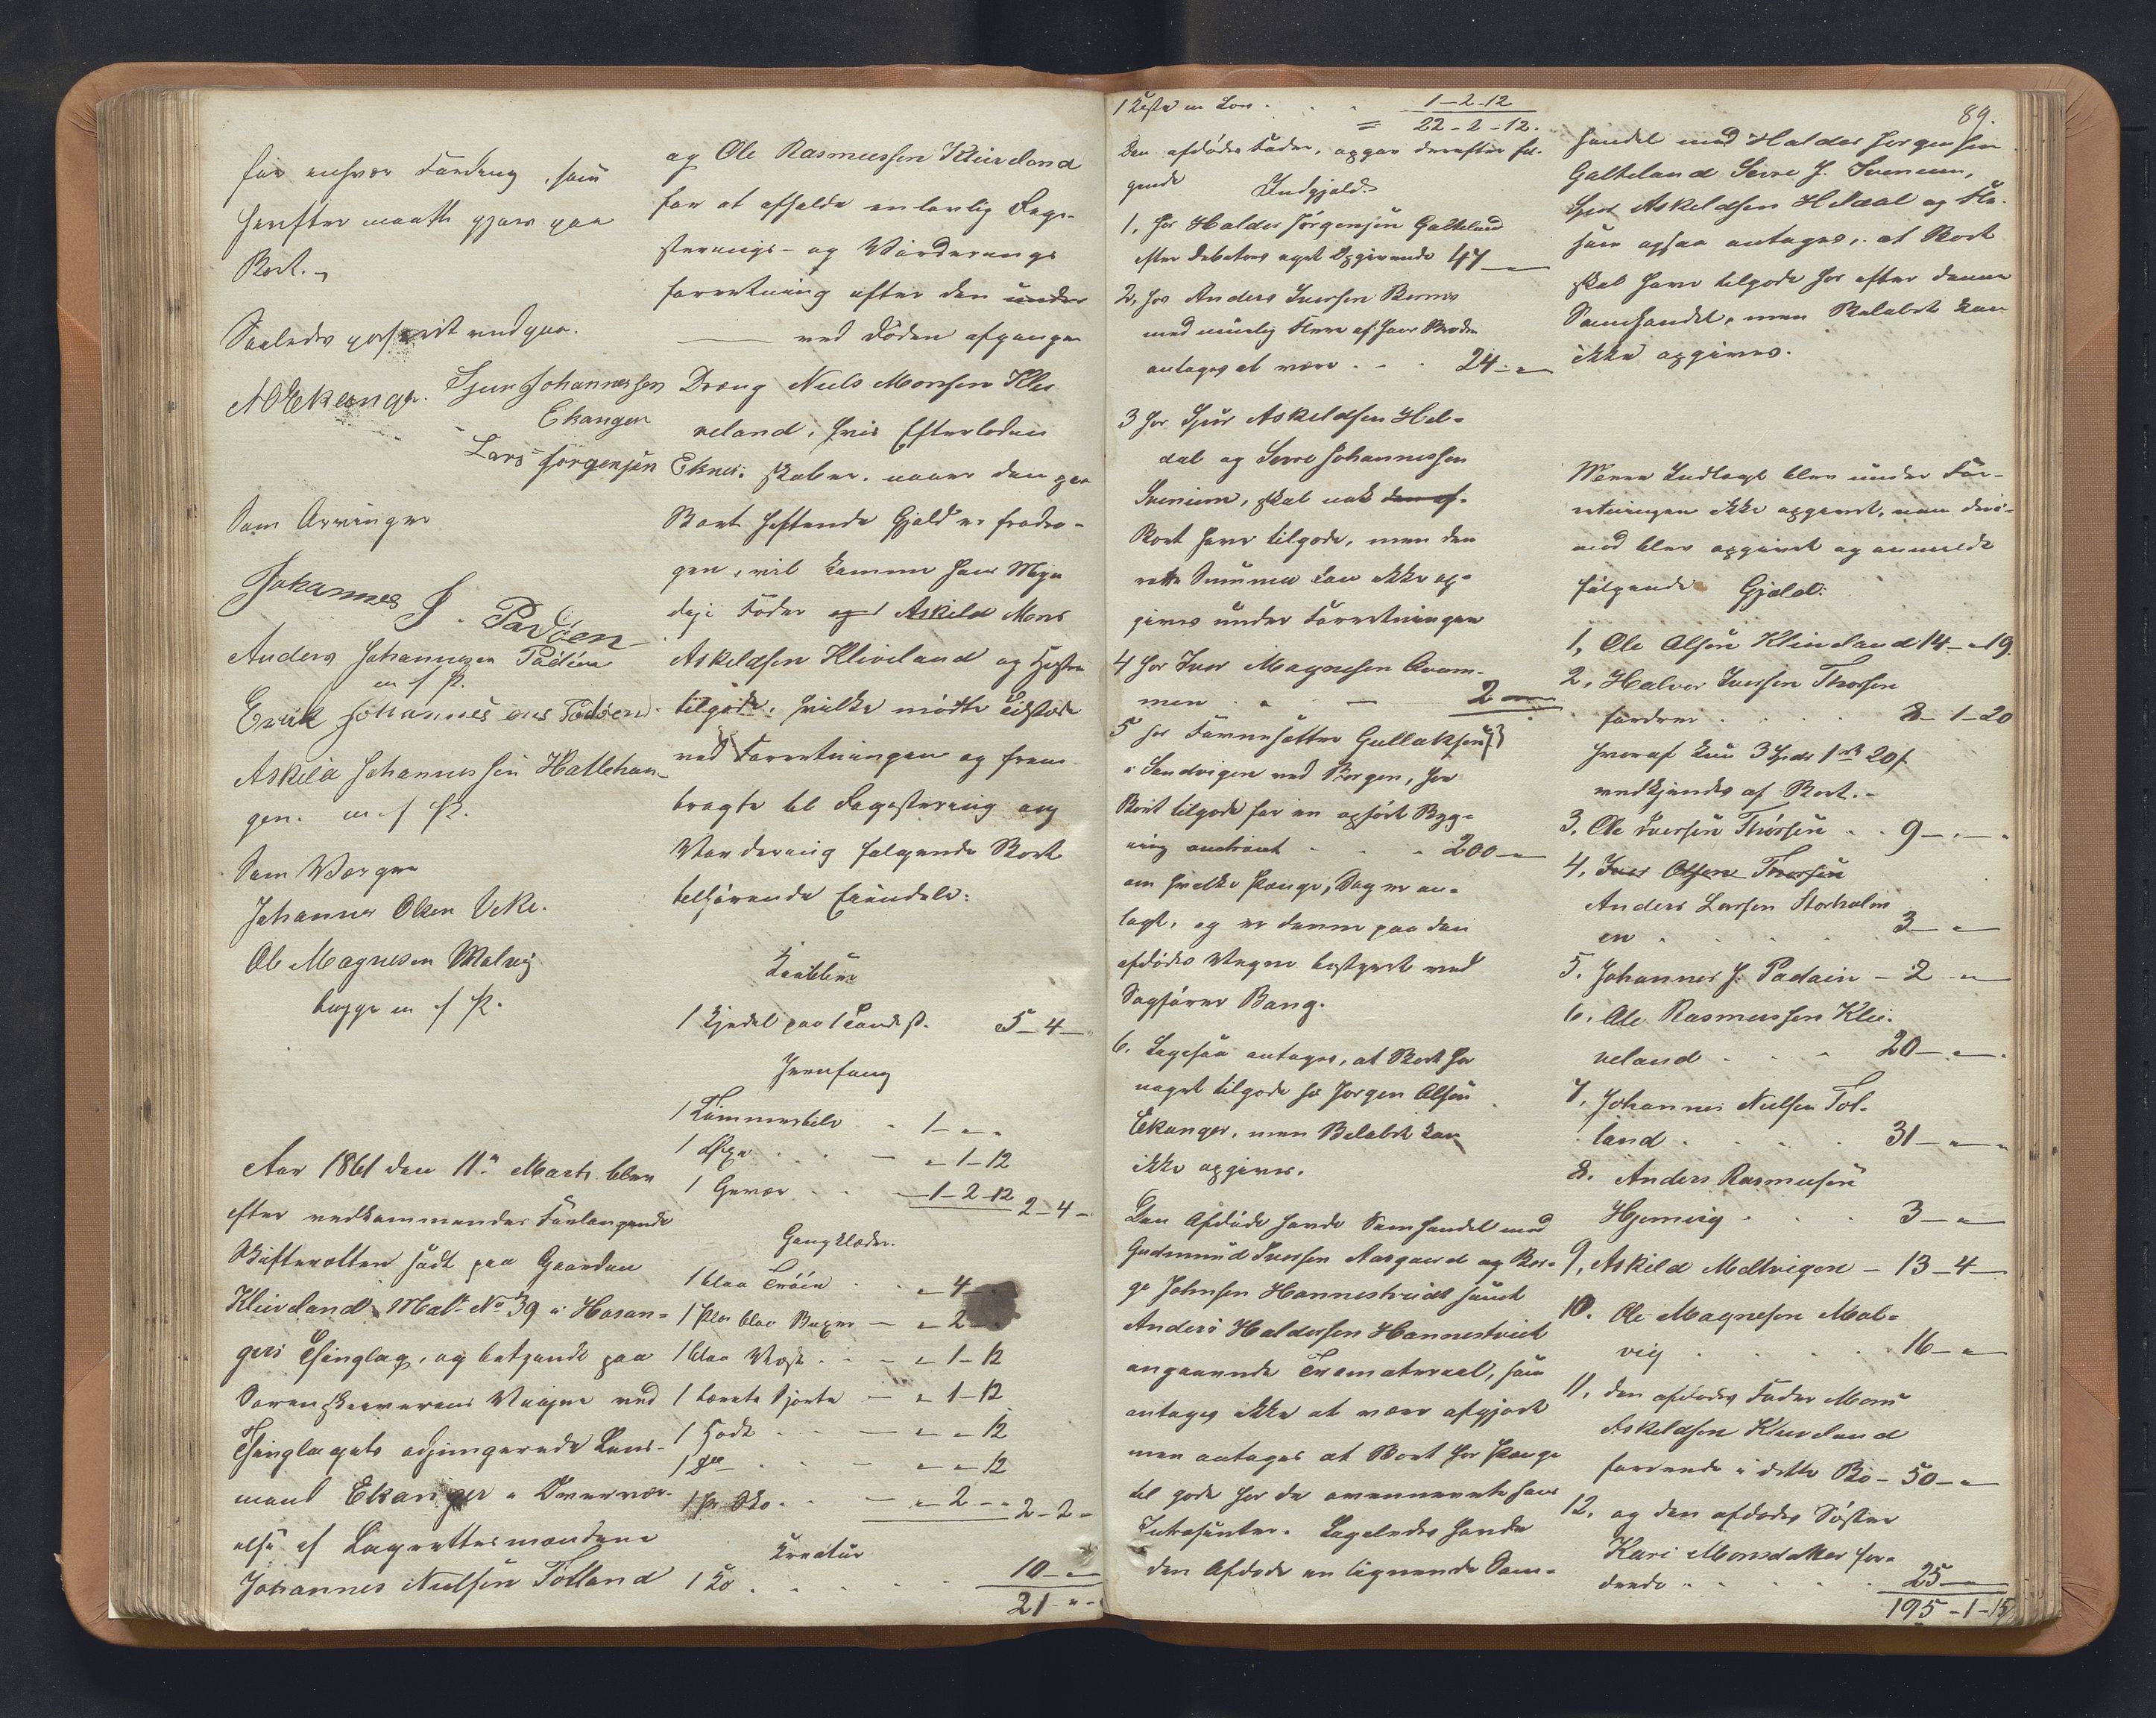 for enhver Fordring, som
herefter maatte gjøres paa
Boet.
Saaledes passeret vedgaar.
Sjur Johannessen
Ekanger
Lars Jørgensen
Som Arvinger
Johannes J. Padøen
Anders Johannesen Padøen
m f P.
Erik Johannes
Askild Johannessen Hatlehan-
gen. m. f P.
Som Værger
Johannes Olsen Veke.
Ole Magnesen Molvig
begge m f P.
Aar 1861 den 11te Marts blev
efter vedkommendes Forlangende
Skifteretten sadt paa Gaarden
Kleiveland Matr No 39 i Hosan-
gers Thinglag, og betjendt paa
Sorenskriverens Vegne ved
Thinglagets adjungerede Lens-
mand Ekanger i Overvær-
else af Lagrettesmændene
Johannes Nielsen Totland
og Ole Rasmussen Kleiveland
for at afholde en lovlig Regi-
sterings- og Vurderings
forretning efter den under
ved Døden afgangne
Dreng Niels Monsen Klei-
veland, hvis Efterladen-
skaber, naar den paa
Boet heftende Gjeld er fradra-
gen, vil komme hans
Fader Askild Mons
Askeldsen Kleiveland og Søstre
tilgode, hvilke mødte tilstede
ved Forretningen og frem-
bragte til Registering og
Vurdering følgende Boet
tilhørende Eiendele:
Kobber
1 Kjedel paa 5-4-
Jernfang
1 Tømmerbile 1 - " -
1 Øxe " 1-12
1 Gevær 1-2-12 2-4-
Gangklæder.
1 blaa Trøie " 4
1 Par blaa Buxer " 2
1 blaa Vest " 1-12
1 Skjorte " 1-12
1 " " 12
1 do " " 12
1 Par Sko " 2 - " 2-2-
Kreatur
1 Ko 10 - "
21 " -
1 Kiste m Laas 1-2-12
= 22-2-12.
Den afdødes Fader, opgav derefter føl-
gende Indgjeld
1, hos Halder Jørgensen Galteland
efter debitors eget Opgivende 47 - "
2, hos Anders Iversen
med muelig Flere af hans Brødre
antages at være 24 - "
3 hos Sjur Askeldsen Hel-
dal og Johannessen
skal nok den af-
Boet have tilgode, men den
rette Summa kan ikke op-
gives under Forretningen
4 hos Iver Magnesen
men " 2
5 hos Gullaksen
i Sandvigen ved Bergen, har
Boet tilgode for en opført Byg-
ning omtrent 200 - "
om hvilke Penge, Sag er an-
lagt, og er denne paa den
afdødes Vegne bestyret ved
Sagfører Bang.
6. Ligesaa antages, at Boet har
noget tilgode hos Jørgen Olsen
Ekanger, men Beløbet kan
ikke opgives.
Den Afdøde havde Samhandel med
Gudmund Iversen Aasgaard og Bør-
ge Johnsen Hannestveit samt
Anders Haldorsen Hannestveit
angaaende Træmateriel, som
antages ikke at være afgjort
men antages at Boet har Penge
til gode hos de ovennevnte hans
Intresenter. Ligeledes havde
den Afdøde en lignende Sam-
89.
handel med Halder Jørgensen
Galteland J.
Sjur Askeldsen Heldal og Fle-
som ogsaa antages, at Boet
skal have tilgode hos efter denne
Samhandel, men Beløbet kan
ikke opgives.
Mere Indtægt blev under For-
retningen ikke opgivet, men deri-
mod blev opgivet og anmeldt
følgende Gjeld:
1, Ole Olsen Kleiveland 14 - " 19
2, Halvor Iversen Thorsen
fordrer 8-1-20
hvoraf kun 3 Spdr 1 ort 20 s
vedkjendes af Boet.
3. Ole Iversen Thorsen 9 - " - "
4, Iver Olsen Thorsen
Anders Larsen Storholm
en 3 - "
5. Johannes J. Padøin - 2 - "
6. Ole Rasmussen Klei-
veland 20 - "
7, Johannes Nielsen Tot-
land 31 - " - "
8. Anders Rasmusen
Hjemvig 3 - "
9, Askild Meltvigen - 13-4-
10. Ole Magnesen Mol-
vig 16 - "
11, den afdødes Fader Mons
Askeldsen Kleiveland
fordrende i dette Bo - 50 - "
12. og den afdødes Søster
Kari Monsdatter for-
drende 25 - "
195-1-15